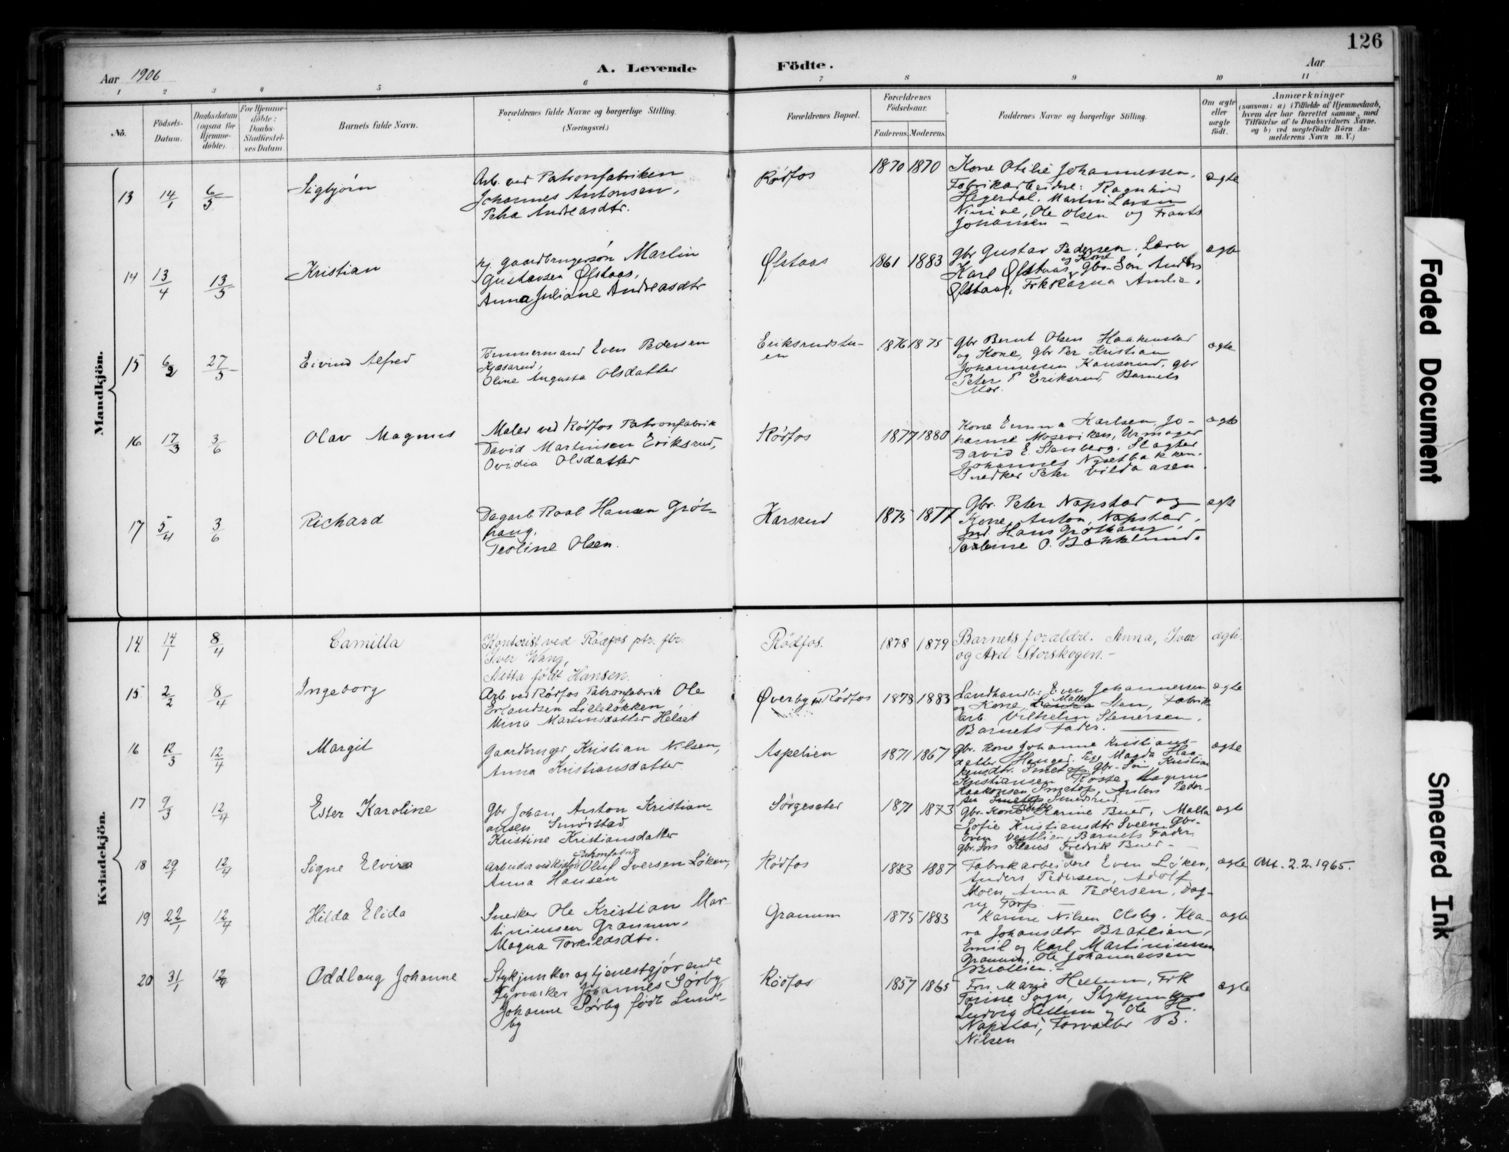 126
Aar 1906
A. Levende Fødte.
Aar
1 2 3 4 5 6 7 8 9 10 11
No.
Fødsels-Datum.
Daabsdatum (ogsaa for Hjemme-døbte).
For Hjemme-døbte: Daabs-Stadfæstelses Datum
Barnets fulde Navn.
Forældrenes fulde Navne og borgerlige Stilling. (Næringsvei.)
Forældrenes Bopæl.
Forældrenes Fødselsaar.
Faderens. Moderens.
Faddernes Navne og borgerlige Stilling.
Om ægte eller uægte født.
Anmærkninger
(saasom: a) i Tilfælde af Hjemmedaab, hvem der har forrettet samme, med Tilføielse af to Daabsvidners Navne, og b) ved uægtefødte Børn Anmelderens Navn m. V.)
Mandkjøn.
13 14/1 6/5 Sigbjørn
Arb. ved Patronfabriken
Johannes Antonsen,
Petra Andreasdtr.
Rødfos 1870 1870
Kone Otilie Johannessen,
Fabrikarbeidere: Ragnhild
Hegerdal, Martin Larsen
Ole Olsen og Frants
Johansen
ægte
14 13/4 13/5 Kristian
gaardbrugersøn Martin
Gustavsen Øfstaas,
Anna Juliane Andreasdtr
Øfstaas 1861 1883
gbr Gustav Pedersen. Lærer
Karl Øfstaas og Kone, gbr. Søn Anders
Øfstaas, Frk Ragna Amlie.
ægte
15 6/2 27/5 Eivind Alfred
Tømmermand Even Pedersen
Oline Augusta Olsdatter
Eriksrudstuen 1876 1875
gbr Bernt Olsen Haakenstad
og Kone, gbr Per Kristian
Johannessen gbr
Peter P Eriksrud, Barnets
Mor.
ægte
16 17/3 3/6 Olav Magnus
Maler ved Rødfos Patronfabrik
David Martinsen Eriksrud,
Ovidia Olsdatter
Rødfos 1877 1880
Kone Emma Karlsen Jo-
hanne Moseviken, Urmager
David E. Stenberg. Slagter
Johannes Nysetbakken.
Snedker Peter
ægte
17 5/4 3/6 Richard
Dagarb Roal Hansen Grøt-
haug,
Teoline Olsen.
Karsrud 1875 1877
Gbr. Peter Napstad og
Kone, Anton Napstad,
Ind. Hans Grøthaug,
O. Bækklund.
ægte
Kvindekjøn.
14 14/1 8/4 Camilla
Kontorist ved Rødfos ptr. fbr.
Iver Wang,
Mitta født Hansen.
Rødfos. 1878 1879
Barnets forældre. Anna, Iver
og Axel Storskogen.
ægte
15 2/2 8/4 Ingeborg
Arb. ved Rødfos Patronfabrik Ole
Erlandsen Lilleløkken,
Mina Martinsdatter Helset
Øverby pr Rødfos 1873 1883
Landhandler Even Johannessen
og Kone, Malla Sten, Fabrik
arb Vilhelm Stenersen,
Barnets Fader.
ægte
16 12/3 12/4 Margit
Gaardbruger Kristian Nilsen,
Anna Kristiansdatter
Aspelien 1871 1867
gbr. kone Johanne Kristians-
datter Hauger, Pige Magda Haa-
kensdtr. Smetop, gbr. Søn Kristian
Kristiansen Magnus
Haakonsen Smetop, Anders Peder-
sen
ægte
17 9/3 12/4 Ester Karoline
Gbr Johan Anton Kristian-
ansen Smørstad
Kristine Kristiansdatter
Sørgeseter 1871 1873
gbr. Kone Karine Buer, Malla
Sofie Kristiansdtr Sveen, gbr.
Even Vestlien, Barnets Fader
gbr. Søn Hans Fredrik Buer
ægte
18 29/1 12/4 Signe Elvire
Arbeider ved Rødfos Patronfabrik Oluf Iversen Løken,
Anna Hansen
Rødfos 1883 1887
Fabrikarbeidere Even Løken,
Anders Pedersen, Adolf
Moen, Anna Pedersen, Dag-
ny Torp.
ægte Att. 2.2.1965.
19 22/1 12/4 Hilda Elida
Snedker Ole Kristian Mar-
tiniussen Granum,
Magna Torkildsdtr.
Granum 1875 1883
Karine Nilsen Olsby. Kla-
ra Johansdtr Bratlien,
Emil og Karl Martiniussen
Granum, Ole Johannessen
Bratlien.
ægte
20 31/1 12/4 Oddlaug Johanne
Stykjunker og tjenestgjørende
Fyrverker Johannes Sørby,
Johanne Sørby født Lunde-
by
Rødfos 1857 1865
Fru Marie Hellum, Frk
Stykjunker
Ludvig Hellum og Ole H.
Napstad, Forvalter B.
Nilsen
ægte
Faded Document
Smeared Ink